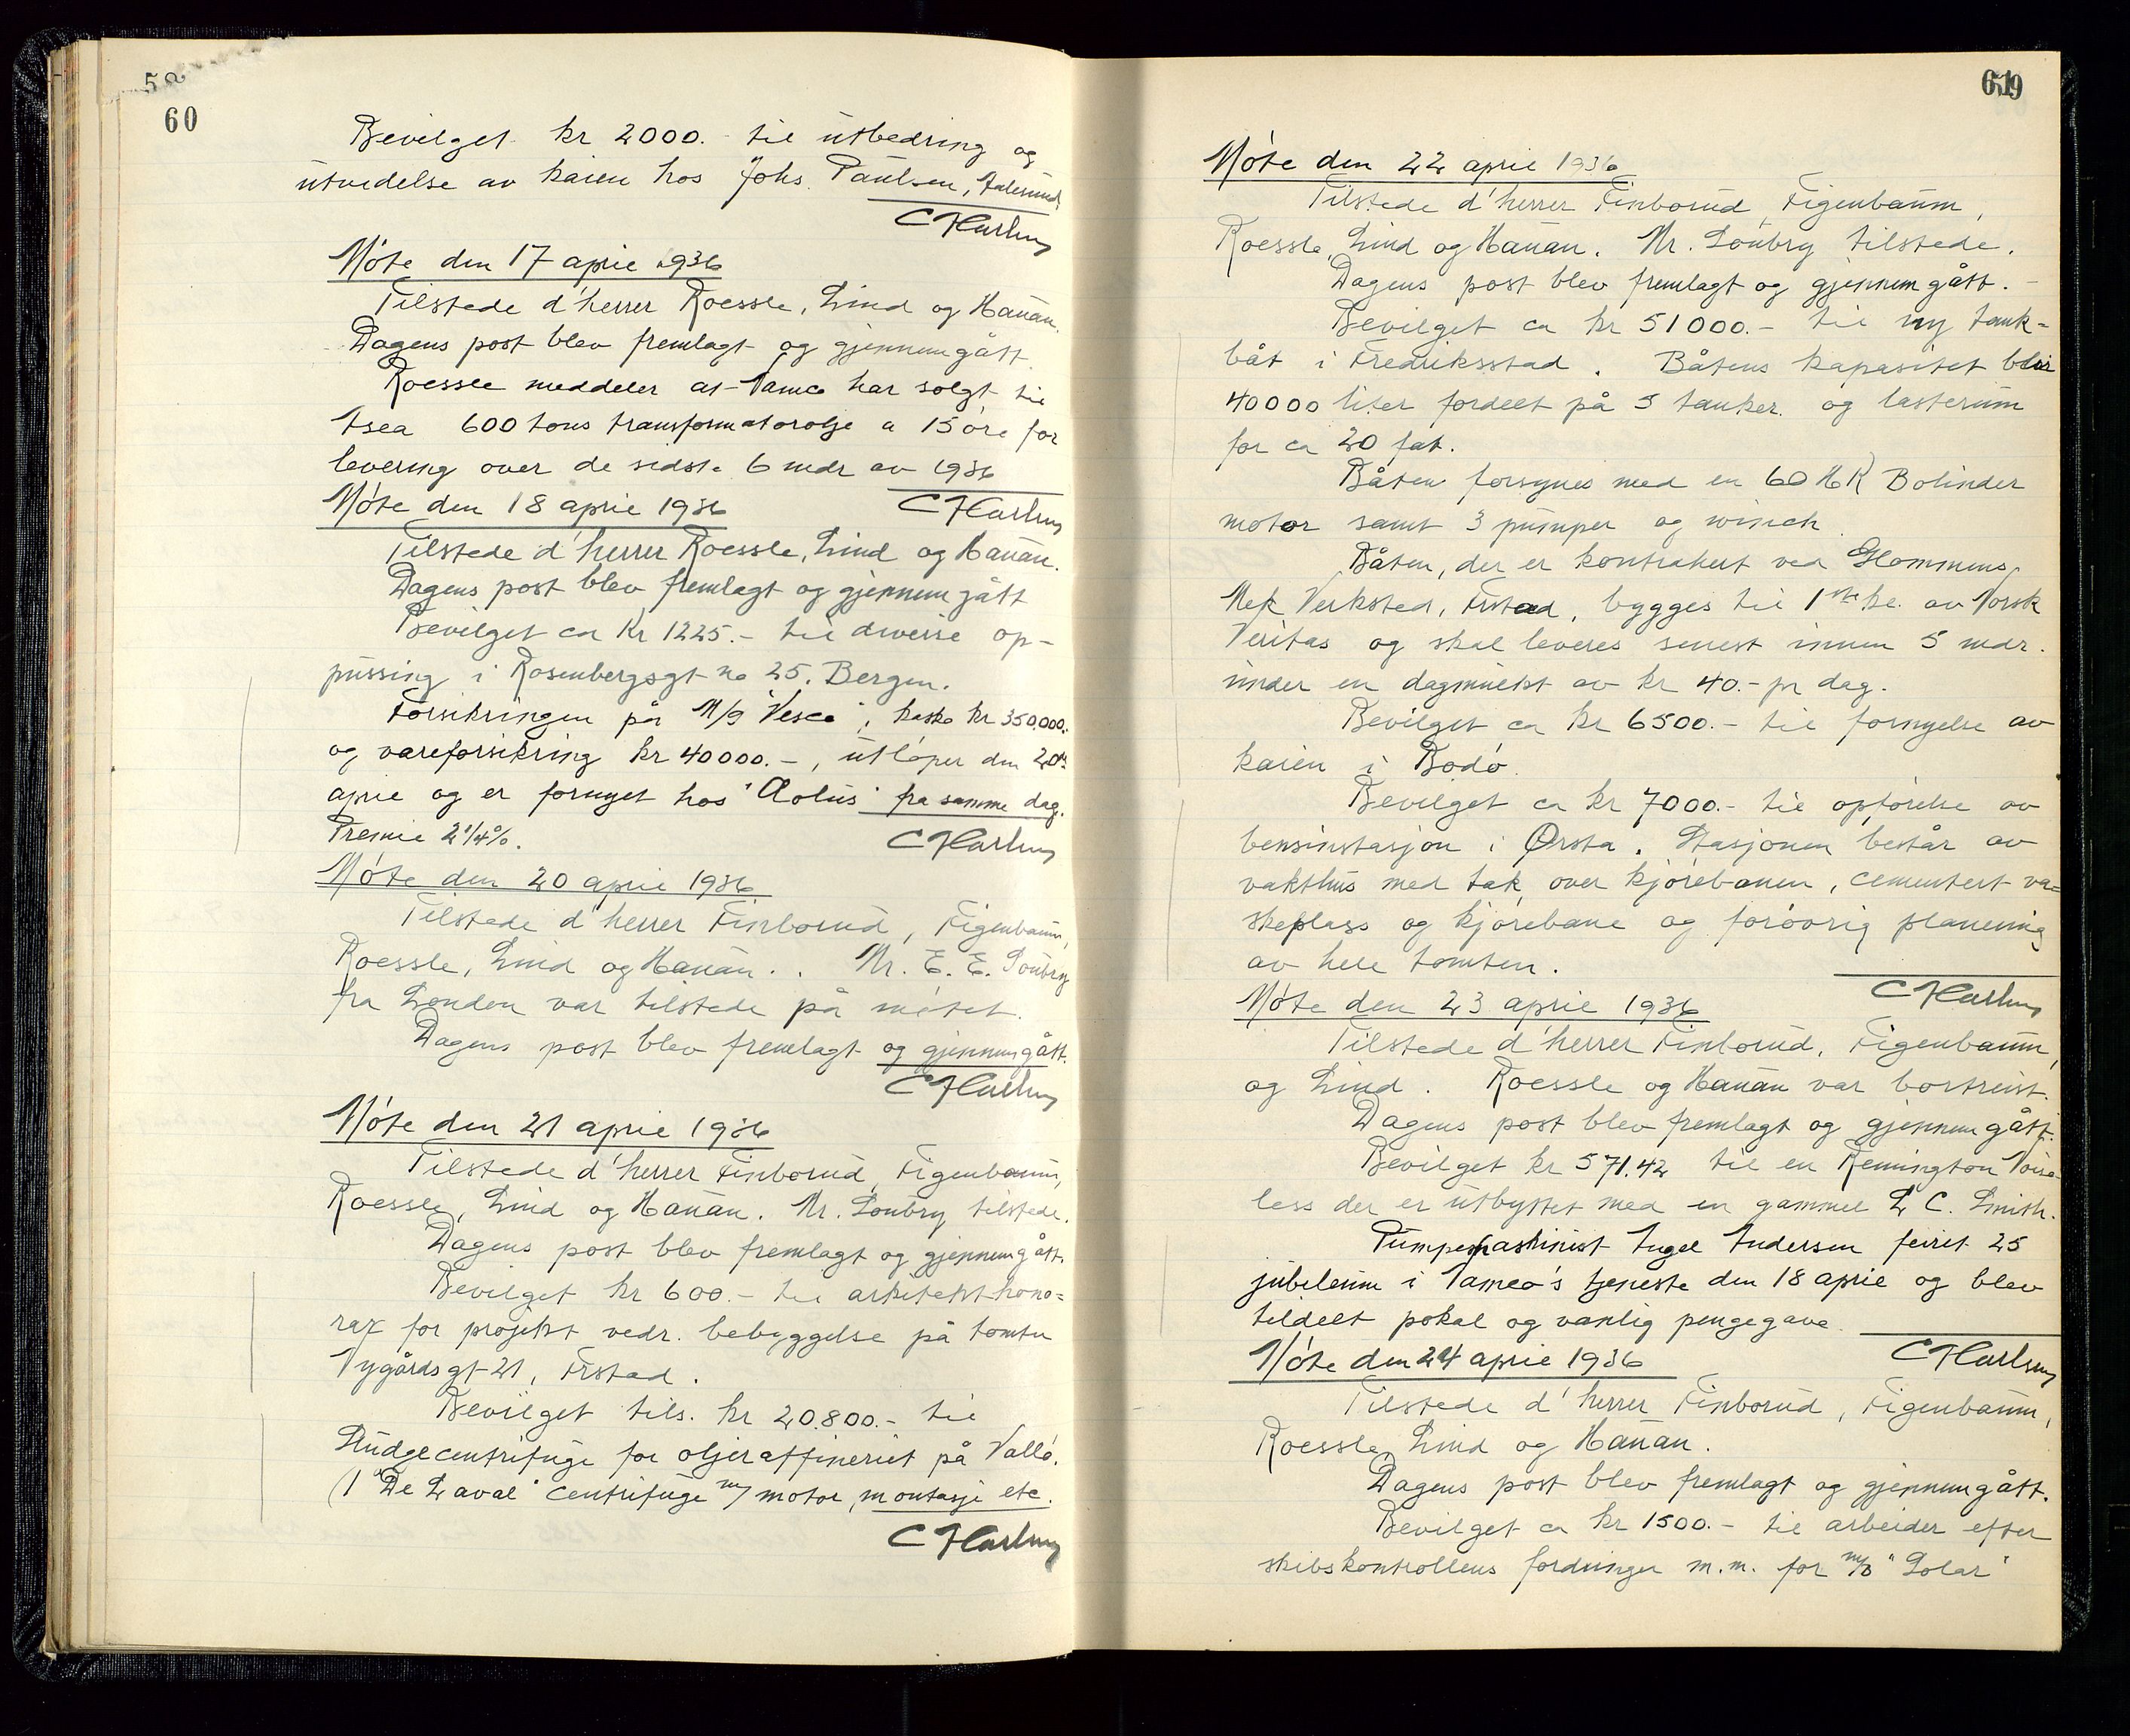 60
Bevilget kr 2000.- til utbedring og
utvidelse av kaien hos Johs. Paulsen, Aalesund.
Møte den 17 april 1936
Tilstede d'herrer Roessle, Lind og Hanån.
Dagens post blev fremlagt og gjennemgått.
Roessle meddeler at Vamco har solgt til
Asea 600 tons transformatorolje a 15 øre for
levering over de sidste 6 mdr av 1936
Møte den 18 april 1936
Tilstede d'herrer Roessle, Lind og Hanån.
Dagens post blev fremlagt og gjennemgått
Bevilget ca kr 1225.- til diverse op-
pussing i Rosenbergsgt no 25, Bergen.
Forsikringen på M/S "Vesco", kasko kr 350,000.-
og vareforsikring kr 40000.-, utløper den 20de
april og er fornyet hos "Æolus" fra samme dag.
Premie 2 1/4%.
Møte den 20 april 1936
Tilstede d'herrer Finborud, Figenbaum,
Roessle, Lind og Hanån. Mr. E. E. Soubry
fra London var tilstede på møtet.
Dagens post blev fremlagt og gjennemgått.
Møte den 21 april 1936
Tilstede d'herrer Finborud, Figenbaum,
Roessle, Lind og Hanån. Mr. Soubry tilstede.
Dagens post blev fremlagt og gjennemgått.
Bevilget kr 600.- til arkitekthono=
rar for projekt vedr. bebyggelse på tomten
Nygårdsgt 21, Frstad.
Bevilget tils. kr 20.800.- til
Sludgecentrifuge for oljeraffineriet på Vallø.
(1 "De Laval" centrifuge m/ motor, montasje etc.
61
Møte den 22 april 1936
Tilstede d'herrer Finborud, Figenbaum,
Roessle, Lind og Hanån. Mr. Soubry tilstede.
Dagens post blev fremlagt og gjennemgått.-
Bevilget ca kr 51000.- til ny tank=
båt i Fredriksstad. Båtens kapasitet blir
40000 liter fordelt på 5 tanker og lasterum
for ca 20 fat.
Båten forsynes med en 60 HK Bolinder
motor samt 3 pumper og winch
Båten, der er kontrahert ved Glommens
Mek Verksted, Frstad, bygges til 1ste kl. av Norsk
Veritas og skal leveres senest innen 5 mdr.
under en dagmulkt av kr 40.- pr dag.
Bevilget ca kr 6500.- til fornyelse av
kaien i Bodø.
Bevilget ca kr 7000.- til opførelse av
bensinstasjon i Ørsta. Stasjonen består av
vakthus med tak over kjørebanen, cementert va=
skeplass og kjørebane og forøvrig planering
av hele tomten.
Møte den 23 april 1936
Tilstede d'herrer Finborud, Figenbaum,
og Lind. Roessle og Hanån var bortreist.
Dagens post blev fremlagt og gjennemgått.
Bevilget kr 571.42 til en Remington Noise-
less der er utbyttet med en gammel L C. Smith.
Pumpemaskinist Angel Andersen feiret 25
jubileum i Vamco's tjeneste den 18 april og blev
tildelt pokal og vanlig pengegave
Møte den 24 april 1936
Tilstede d'herrer Finborud, Figenbaum,
Roessle, Lind og Hanån.
Dagens post blev fremlagt og gjennemgått.
Bevilget ca kr 1500.- til arbeider efter
skibskontrollens fordringer m.m. for m/s "Solar"